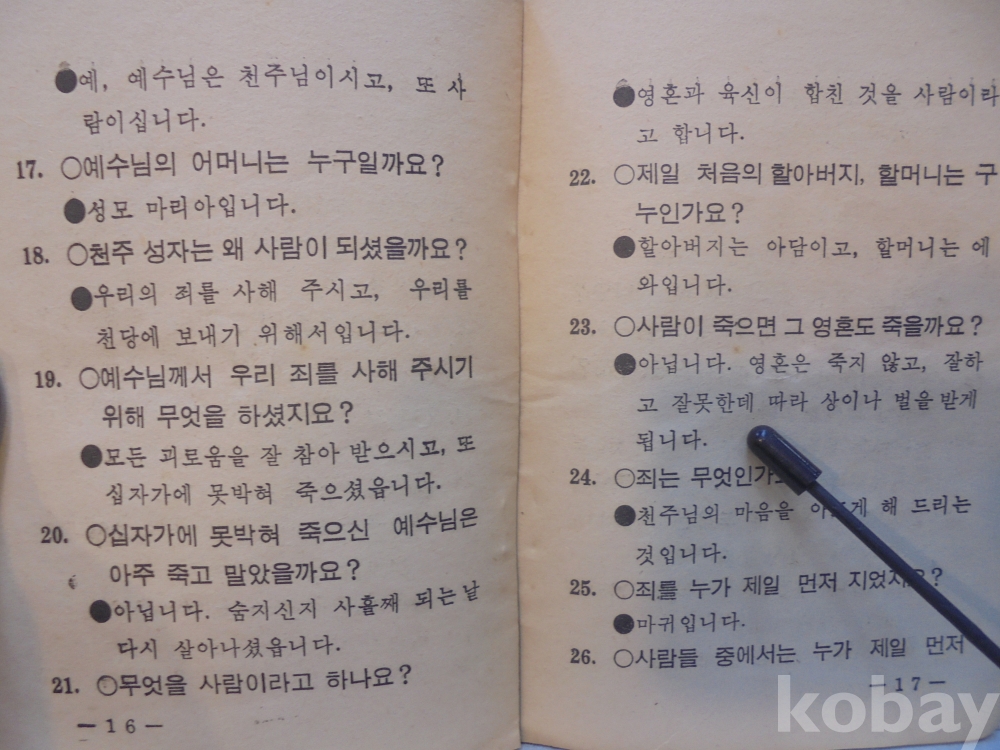 ●예, 예수님은 천주님이시고, 또 사
람이십니다.
17. ○예수님의 어머니는 누구일까요?
●성모 마리아입니다.
18. ○천주 성자는 왜 사람이 되셨을까요?
●우리의 죄를 사해 주시고, 우리를
천당에 보내기 위해서입니다.
19. ○예수님께서 우리 죄를 사해 주시기
위해 무엇을 하셨지요?
●모든 괴로움을 잘 참아 받으시고, 또
십자가에 못박혀 죽으셨읍니다.
20. ○십자가에 못박혀 죽으신 예수님은
아주 죽고 말았을까요?
●아닙니다. 숨지신지 사흘째 되는날
다시 살아나셨읍니다.
21. ○무엇을 사람이라고 하나요?
— 16 —
●영혼과 육신이 합친 것을 사람이라
고 합니다.
22. ○제일 처음의 할아버지, 할머니는 구
누인가요?
●할아버지는 아담이고, 할머니는 에
와입니다.
23. ○사람이 죽으면 그 영혼도 죽을까요?
●아닙니다. 영혼은 죽지 않고, 잘하
고 잘못한데 따라 상이나 벌을 받게
됩니다.
24. ○죄는 무엇인가
●천주님의 마음을 해 드리는
것입니다.
25. ○죄를 누가 제일 먼저 지었지요?
●마귀입니다.
26. ○사람들 중에서는 누가 제일 먼저
— 17 —
kobay